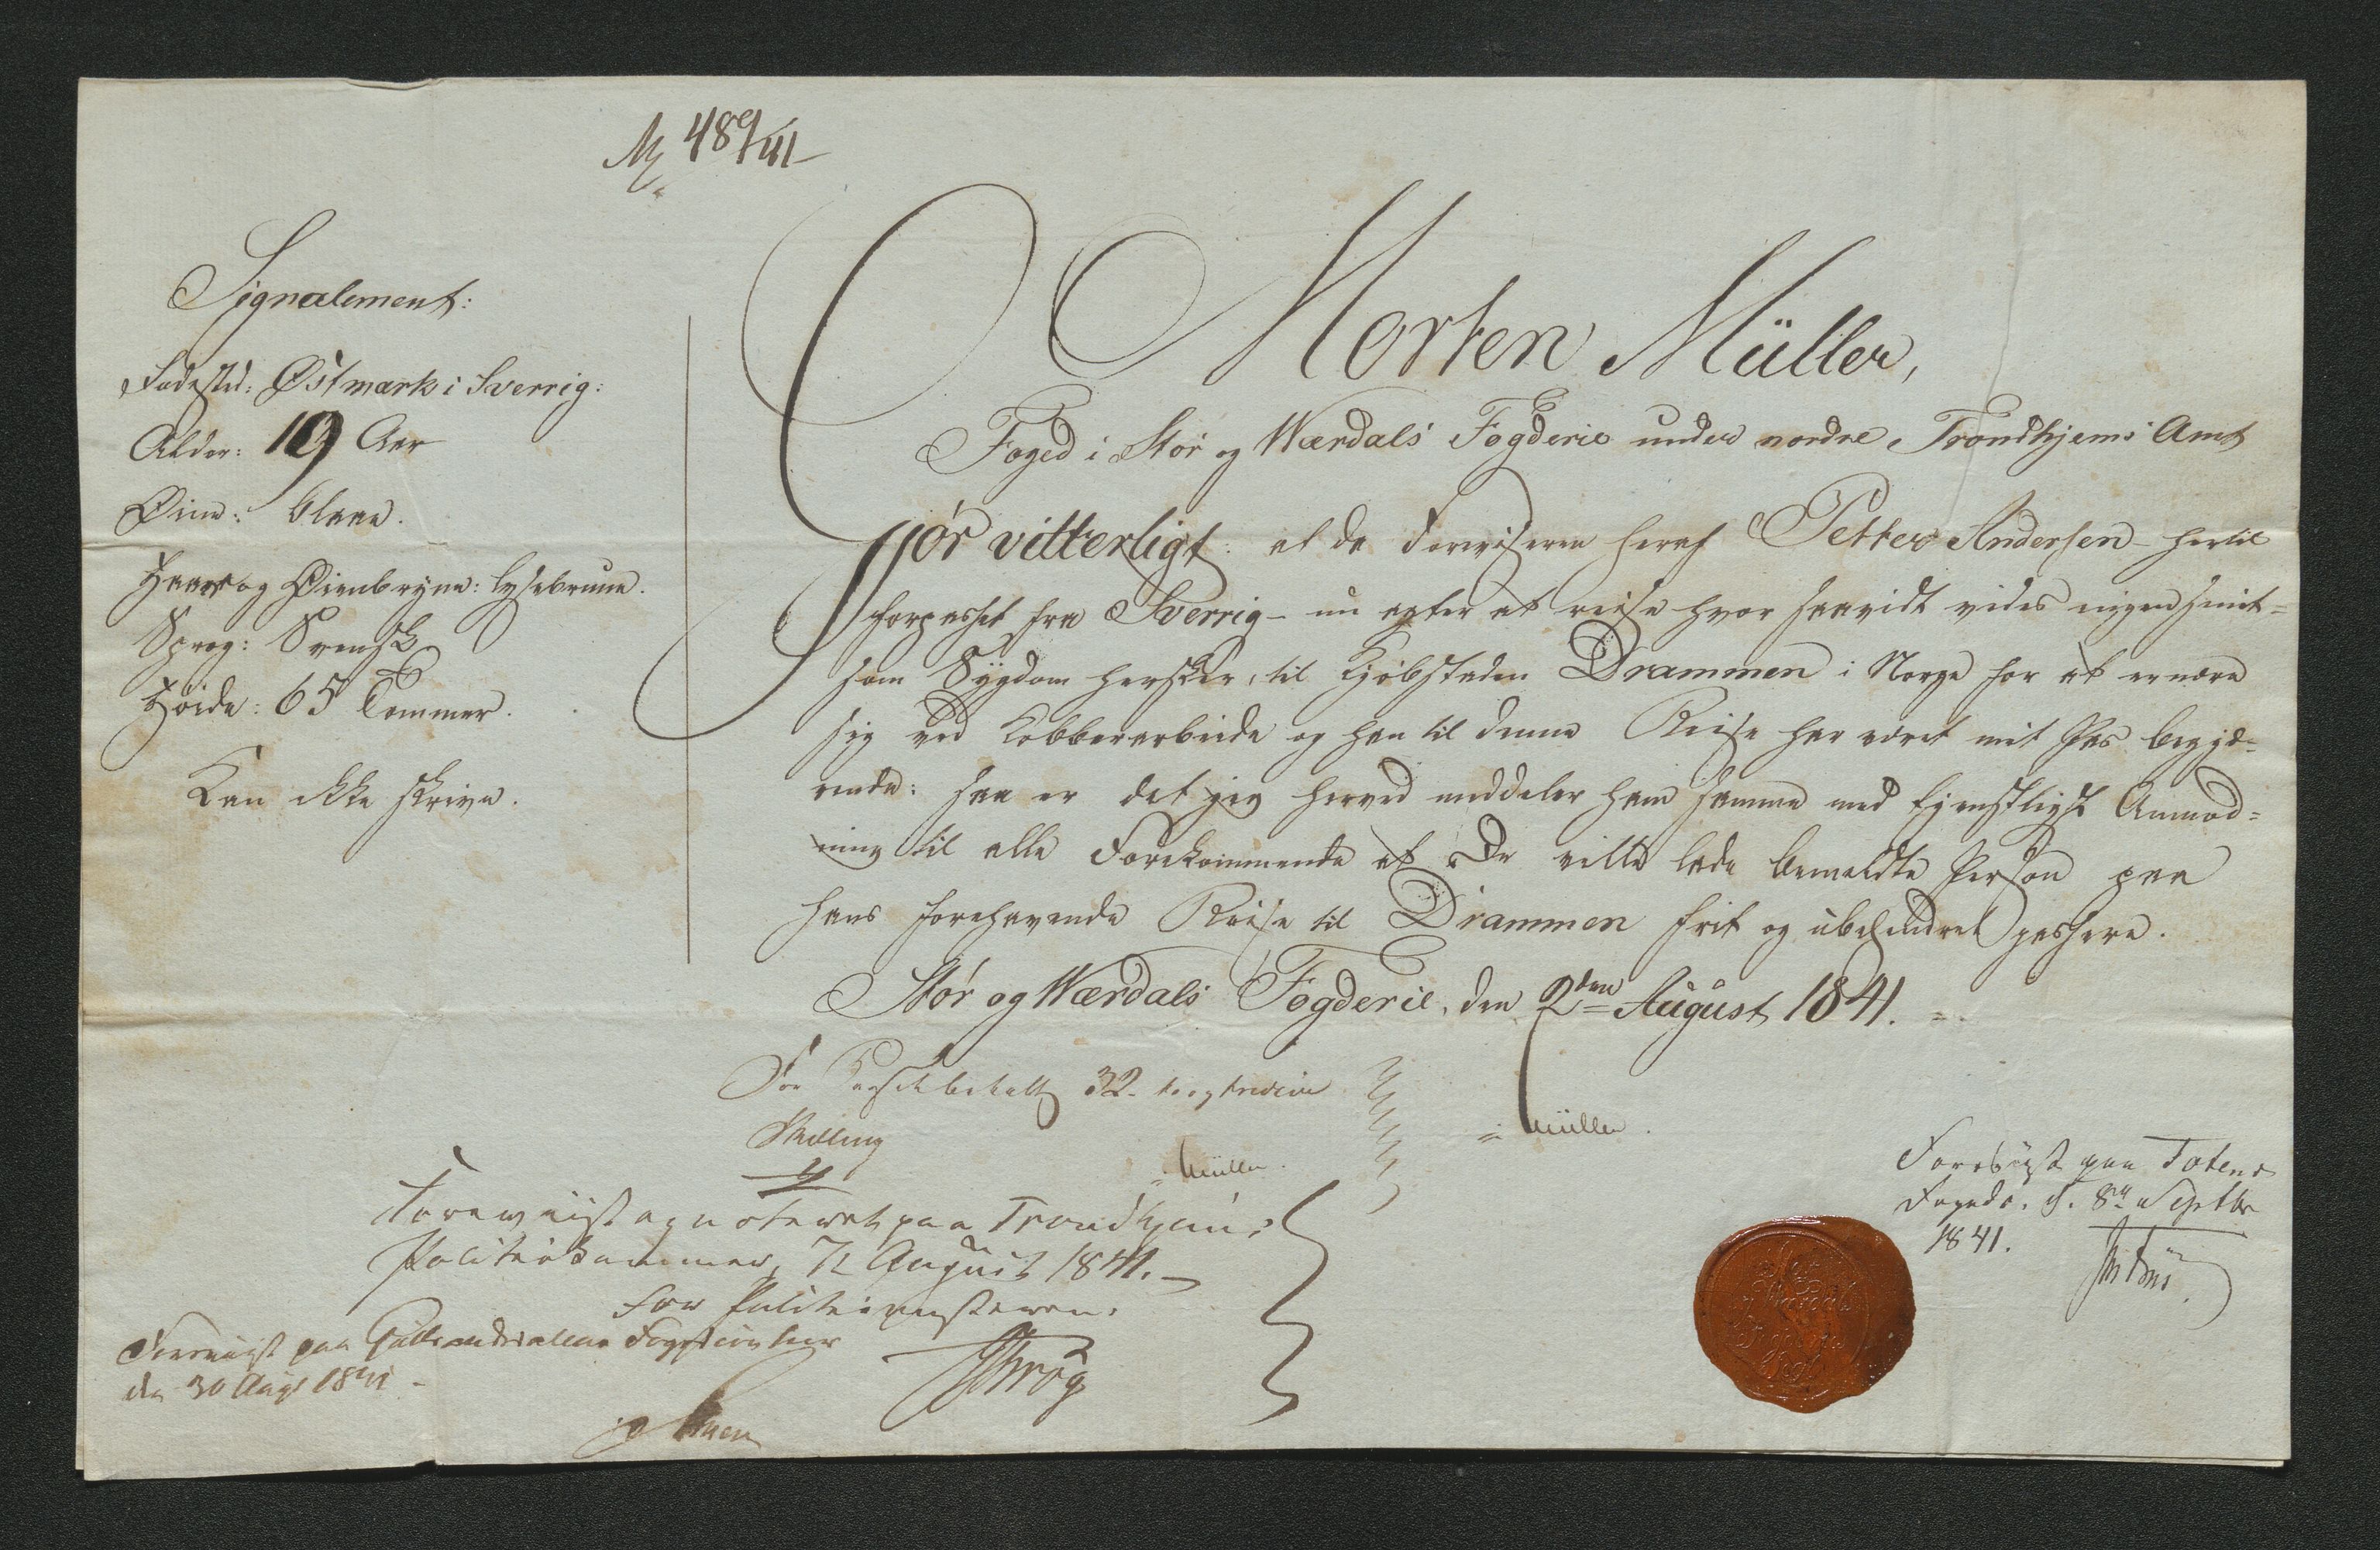 No 489/41
Signalement:
Fødested: Østmark i Sverrig:
Alder: 19 Aar
Øine: blaae.
Haar og Øienbryne: lysebrune.
Sprog: Svensk
Høide: 65 Tommer.
Kan ikke skrive.
Morten Müller,
Foged i Stør og Wærdals Fogderie under nordre Trondhjems Amt
Gjør vitterligt: at da Foreviseren heraf Petter Andersen - hertil
forpasset fra Sverrig - nu agter at reise hvor saavidt vides ingen smit=
som Sygdom hersker, til Kjøbstaden Drammen i Norge for at ernære
sig ved Kobberarbeide og han til denne Reise har været mit Pas begjæ=
rende: saa er det jeg herved meddeler ham samme med tjenstligst Anmod=
ning til alle Forekommende at De ville lade bemeldte Person paa
hans forehavende Reise til Drammen frit og ubehindret passere.
Stør og Wærdals Fogderie, den 2den August 1841.
Müller.
For Passet betalt 32 - to og tredive
Skilling
Müller.
Foreviist og noteret paa Trondhjems
Politiekammer, 7 August 1841.
For Politiemesteren.
Foreviist paa Guldbrandsdalens Fogedcontoir
den 30 Aug 1841
Foreviist paa Totens
Fogdr. d. 8de Septbr
1841.